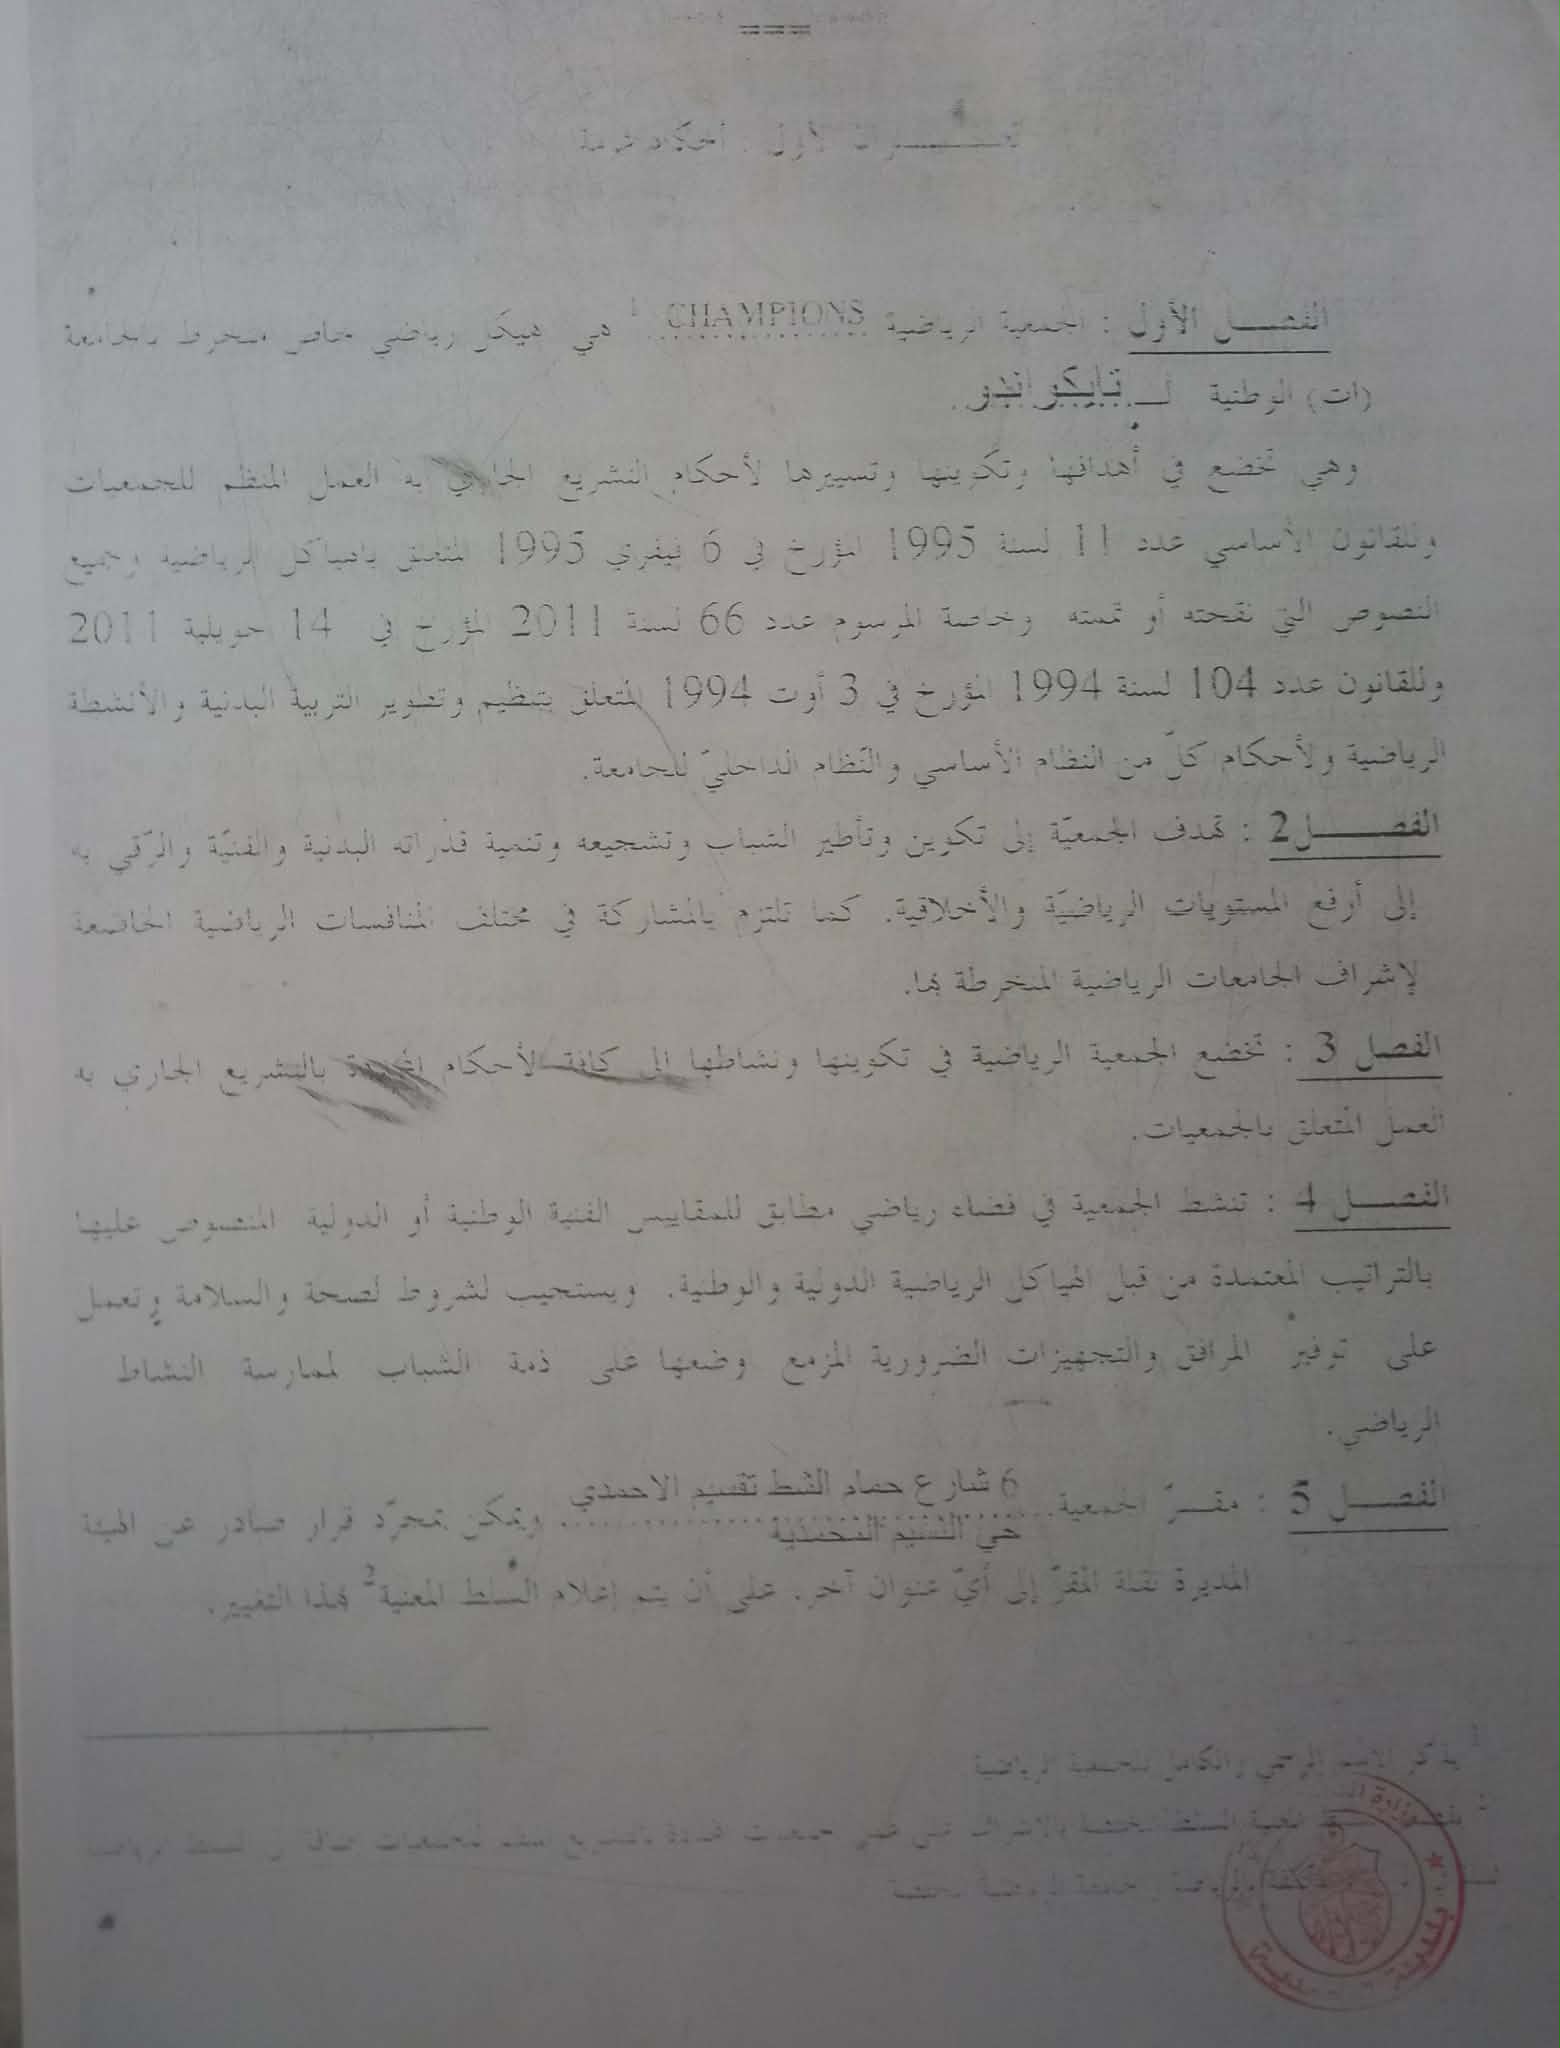 ===
العنـــوان الأول : أحكام عامة
الفصـــل الأول : الجمعية الرياضية CHAMPIONS 1 هي هيكل رياضي خاص منخرط بالجامعة
(ات) الوطنية لـ تايكواندو.
وهي تخضع في أهدافها وتكوينها وتسييرها لأحكام التشريع الجاري به العمل المنظم للجمعيات
وللقانون الأساسي عدد 11 لسنة 1995 المؤرخ في 6 فيفري 1995 المتعلق بالهياكل الرياضية وجميع
النصوص التي نقحته أو تممته وخاصة المرسوم عدد 66 لسنة 2011 المؤرخ في 14 جويلية 2011
وللقانون عدد 104 لسنة 1994 المؤرخ في 3 أوت 1994 المتعلق بتنظيم وتطوير التربية البدنية والأنشطة
الرياضية ولأحكام كلّ من النظام الأساسي والنّظام الداخليّ للجامعة.
الفصـــــل2 : تهدف الجمعيّة إلى تكوين وتأطير الشباب وتشجيعه وتنمية قدراته البدنية والفنيّة والرّقي به
إلى أرفع المستويات الرياضيّة والأخلاقية. كما تلتزم بالمشاركة في مختلف المنافسات الرياضية الخاضعة
لإشراف الجامعات الرياضية المنخرطة بها.
الفصل 3 : تخضع الجمعية الرياضية في تكوينها ونشاطها إلى كافة الأحكام بالتشريع الجاري به
العمل المتعلق بالجمعيات.
الفصـــل 4 : تنشط الجمعية في فضاء رياضي مطابق للمقاييس الفنية الوطنية أو الدولية المنصوص عليها
بالتراتيب المعتمدة من قبل الهياكل الرياضية الدولية والوطنية. ويستجيب لشروط لصحة والسلامة وتعمل
على توفير المرافق والتجهيزات الضرورية المزمع وضعها على ذمة الشباب لممارسة النشاط
الرياضي.
الفصـــل 5 : مقـــرّ الجمعية 6 شارع حمام الشط تقسيم الاحمدي
حي النسيم المحمدية ويمكن بمجرّد قرار صادر عن الهيئة
المديرة نقلة المقرّ إلى أيّ عنوان آخر. على أن يتم إعلام السلط المعنية2 بهذا التغيير.
1 يذكر الاسم الرسمي والكامل للجمعية الرياضية
2
وزارة
بلدية